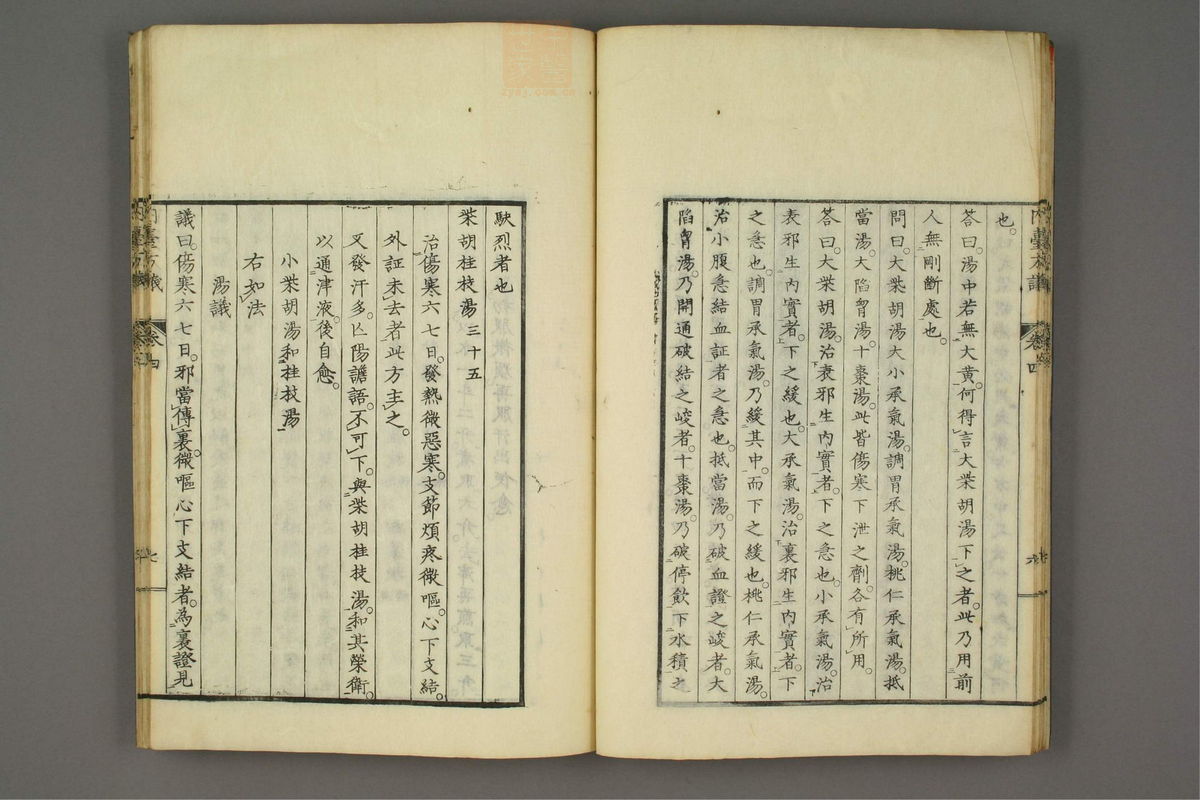 也。
答曰。湯中若無大黄。何得言大柴胡湯下之者。此乃用前
人無剛斷處也。
問曰。大柴胡湯大小承氣湯。調胃承氣湯。桃仁承氣湯。抵
當湯。大陷胷湯。十棗湯。此皆傷寒下泄之劑。各有所用。
答曰。大柴胡湯。治表邪生內實者。下之急也。小承氣湯。治
表邪生內實者。下之緩也。大承氣湯。治裏邪生內實者。下
之急也。調胃承氣湯。乃緩其中。而下之緩也。桃仁承氣湯。
治小腹急結血証者之急也。抵當湯。乃破血證之峻者。大
陷胷湯。乃開通破結之峻者。十棗湯。乃破停飲下水積之
駃烈者也
柴胡桂枝湯三十五
治傷寒六七日。發熱微惡寒。支節煩疼微嘔。心下支結。
外証未去者此方主之。
又發汗多。亾陽譫語。不可下。與柴胡桂枝湯。和其榮衛。
以通津液。後自愈。
小柴胡湯和桂枝湯
右如法
湯議
議曰。傷寒六七日。邪當傳裏。微嘔心下支結者。為裏證見
內臺方議
卷四